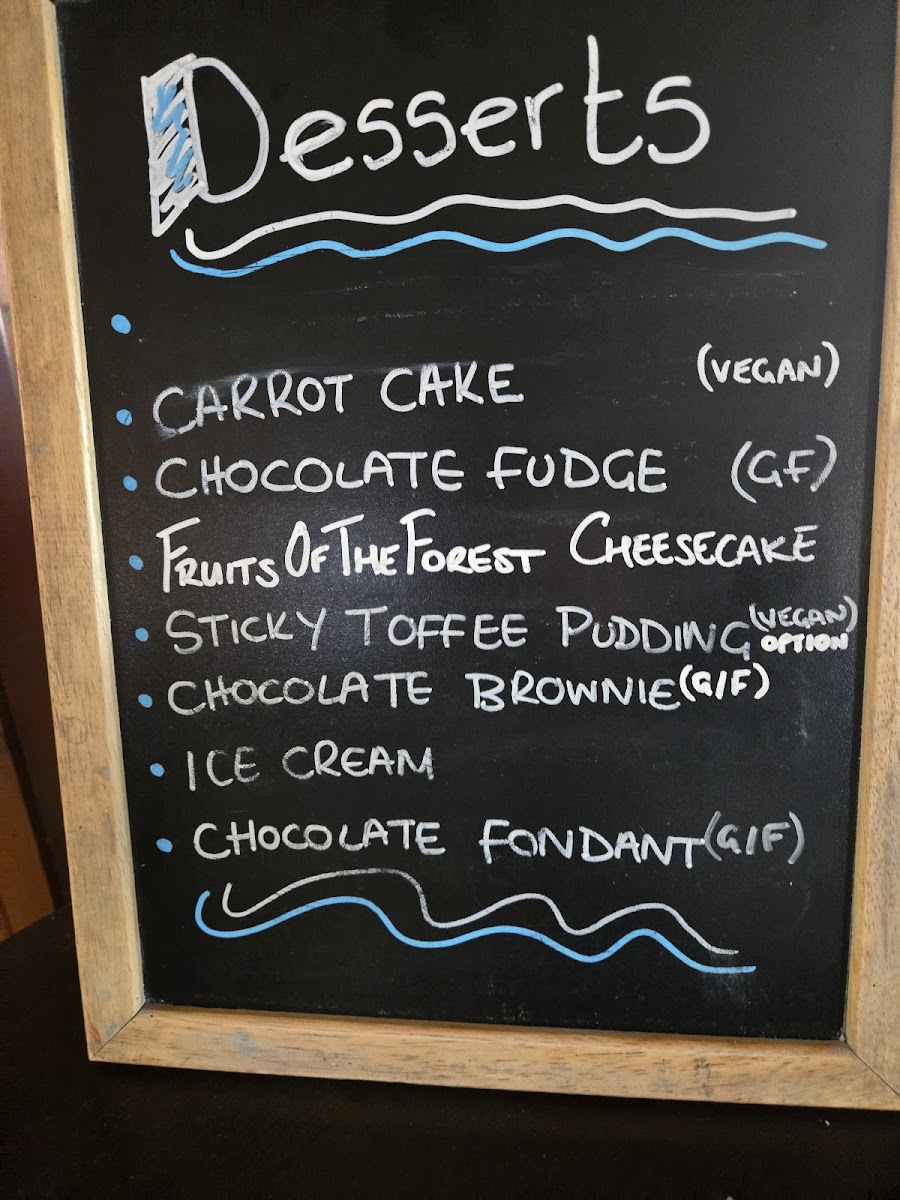 Desserts
•
• CARROT CAKE (VEGAN)
• CHOCOLATE FUDGE (GF)
• FRUITS OF THE FOREST CHEESECAKE
• STICKY TOFFEE PUDDING (VEGAN) OPTION
• CHOCOLATE BROWNIE (G/F)
• ICE CREAM
• CHOCOLATE FONDANT (G/F)